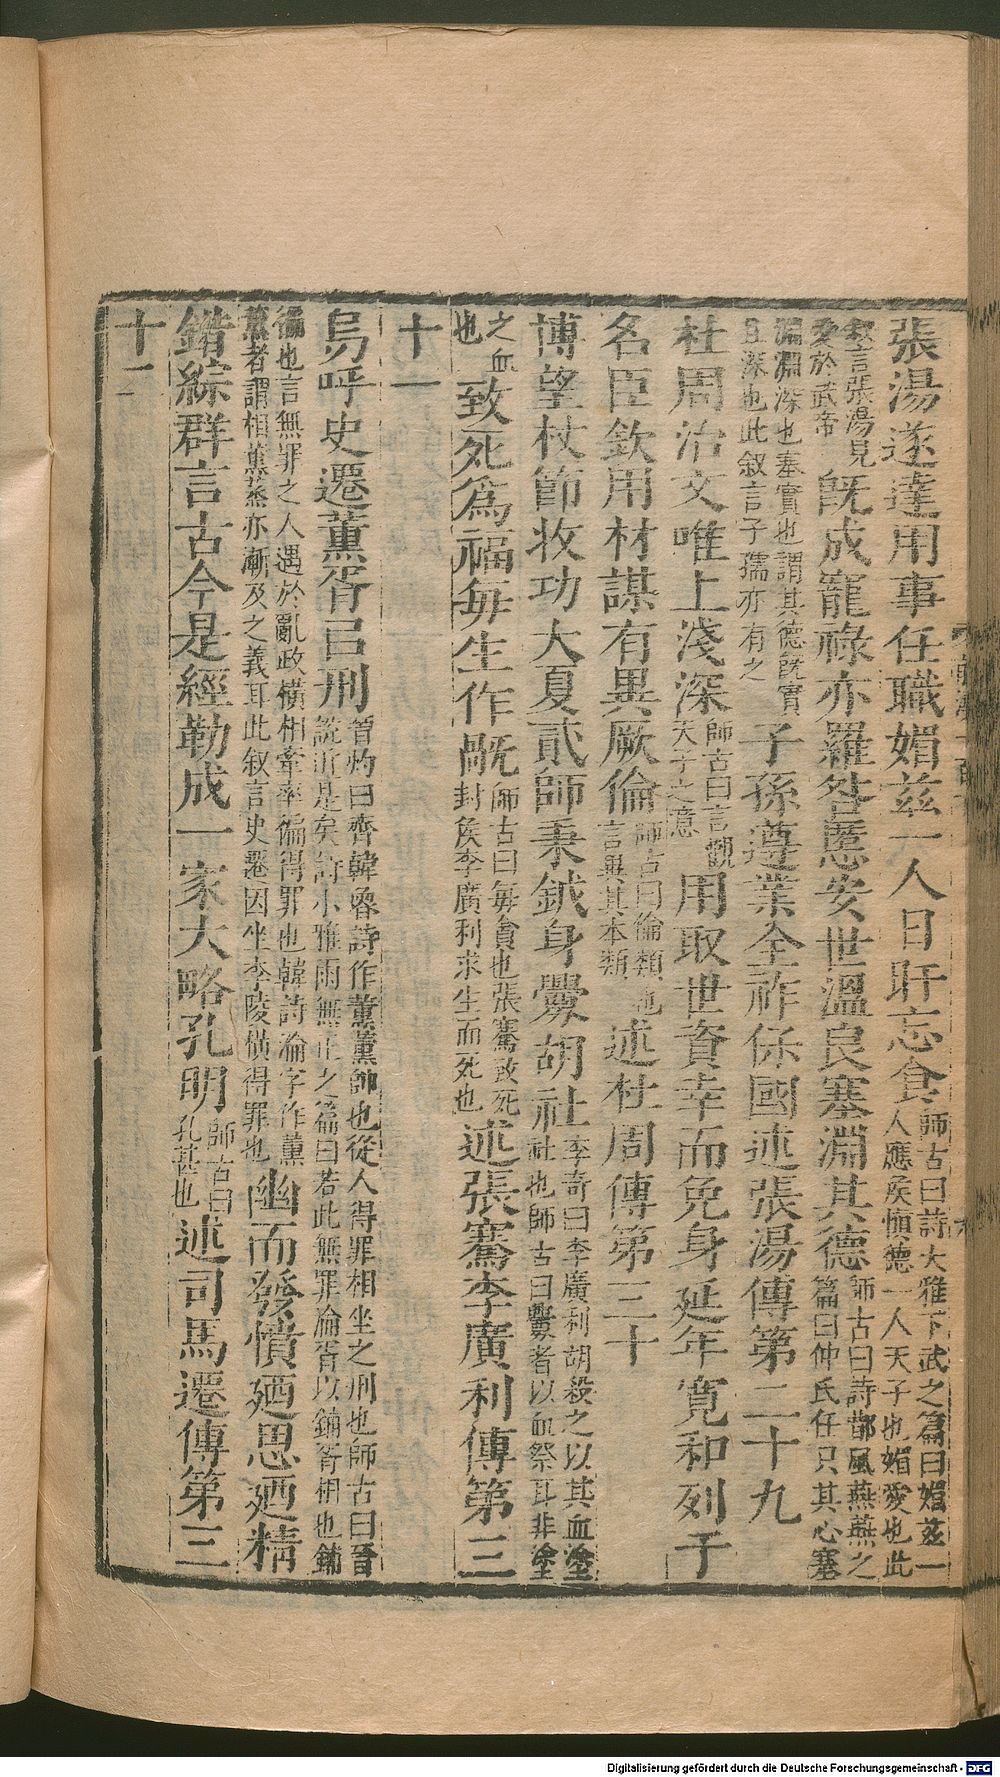 張湯遂達用事任職媚茲一人日旰忘食師古曰詩大雅下武之篇曰媚茲一人應侯慎德一人天子也媚愛也此
敘言張湯見愛於武帝旣成寵祿亦羅咎慝安世溫良塞淵其德師古曰詩邶風燕燕之篇曰仲氏任只其心塞
淵淵深也塞實也謂其德旣實且深也此叙言子孺亦有之子孫遵業全祚保國述張湯傳第二十九
杜周治文唯上淺深師古曰言觀天子之意用取世資幸而免身延年寬和列于
名臣欽用材謀有異厥倫師古曰倫類也言異其本類述杜周傳第三十
博望杖節收功大夏貳師秉鉞身釁胡社李奇曰李廣利胡殺之以其血塗社也師古曰釁者以血祭耳非塗
之血也致死爲福每生作旤師古曰每貪也張騫致死封侯李廣利求生而死也述張騫李廣利傳第三
十一
烏呼史遷薰胥㠯刑晉灼曰齊韓魯詩作薰薰帥也從人得罪相坐之刑也師古曰晉說近是矣詩小雅雨無正之篇曰若此無罪淪胥以鋪胥相也鋪
徧也言無罪之人遇於亂政橫相牽率徧得罪也韓詩淪字作薰薰者謂相薰蒸亦漸及之義耳此叙言史遷因坐李陵橫得罪也幽而發憤廼思廼精
錯綜群言古今是經勒成一家大略孔明師古曰孔甚也述司馬遷傳第三
十二
Digitalisierung gefördert durch die Deutsche Forschungsgemeinschaft - DFG